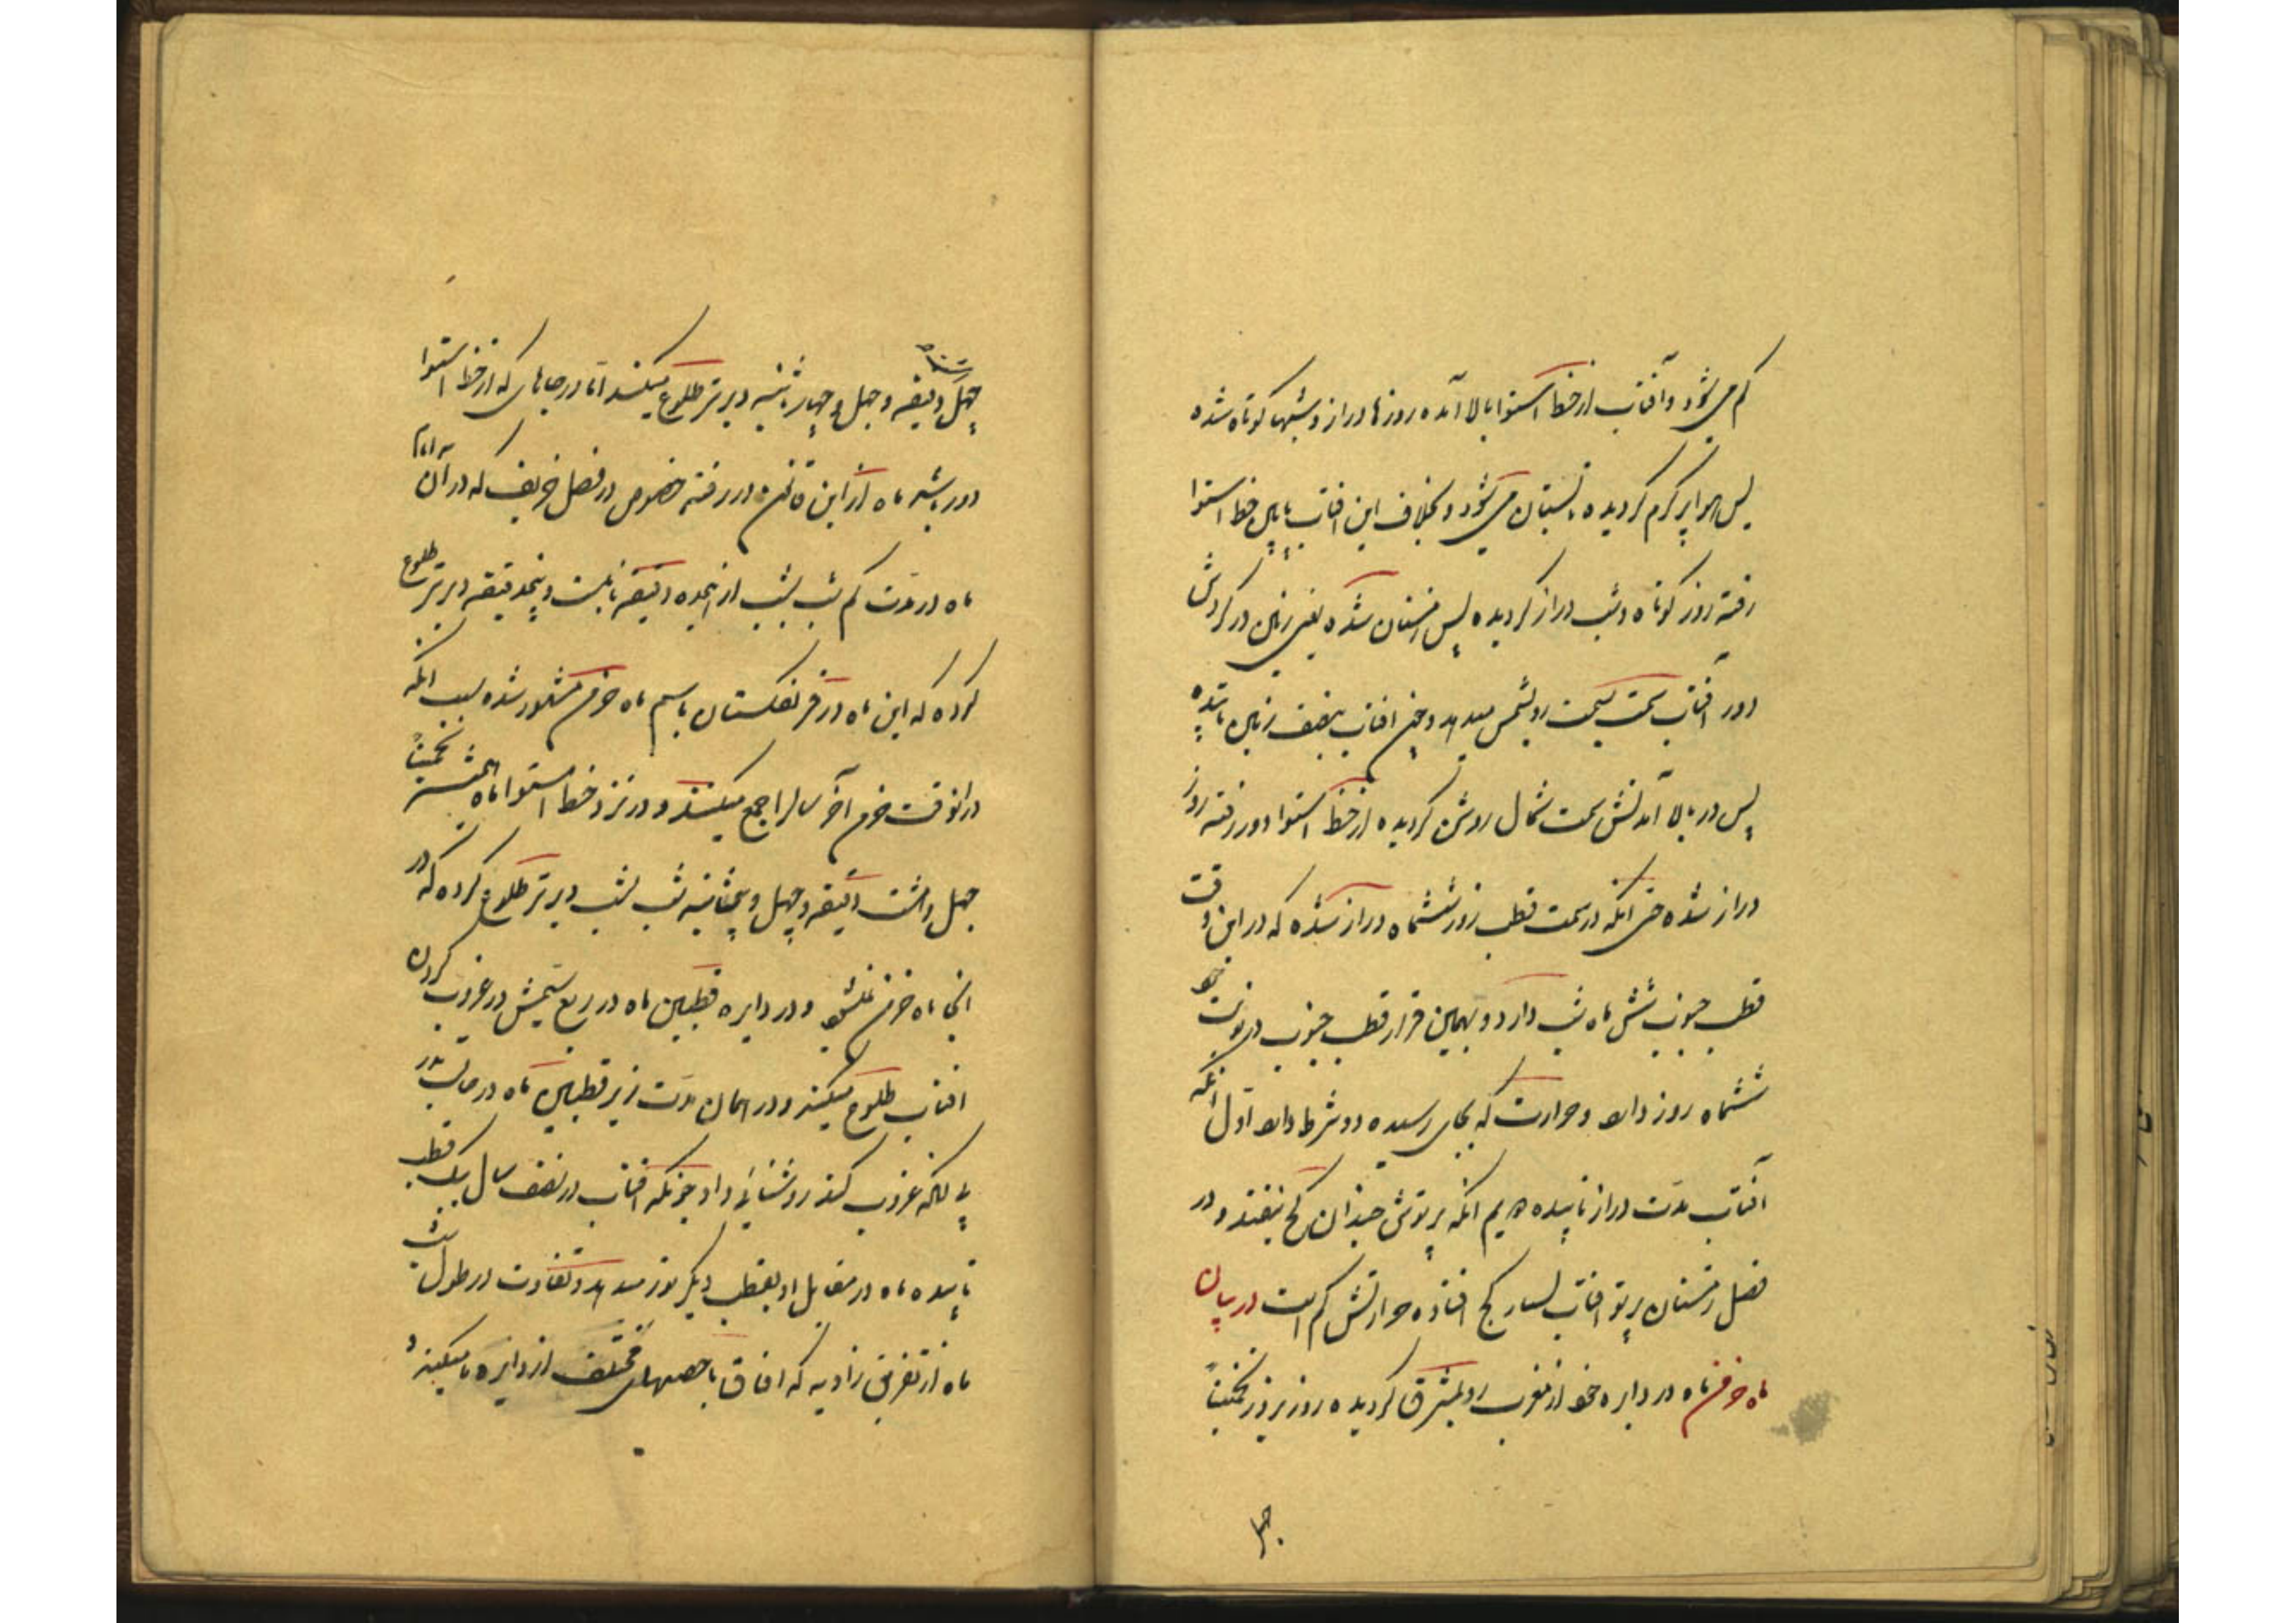 کم می شود و آفتاب از خط استوا بالا آمده روزها دراز و شبها کوتاه شده
پس هوا پر گرم گردیده تابستان می شود و بخلاف این افتاب پایین خط استوا
رفته روز کوتاه و شب دراز گردیده پس زمستان شده یعنی زمین در گردش
دور افتاب سمت بسمت رو بشمس میدهد و چون افتاب بنصف زمین تابیده
پس در بالا آمدنش سمت شمال روشن گردیده از خط استوا دور رفته روز
دراز شده حتی انکه در سمت قطب روز ششماه دراز شده که در این وقت
قطب جنوب شش ماه شب دارد و بهمین قرار قطب جنوب در نوبت خود
ششماه روز دارد و حرارت که بجای رسیده دو شرط دارد اول انکه
آفتاب مدت دراز تابیده دویم انکه پرتوش چندان کج نیفتد و در
فصل زمستان پرتو افتاب بسیار کج افتاده حرارتش کم است در بیان
ماه خرمن ماه در دایره خود از مغرب رو بمشرق گردیده روز بروز تخمیناً
چهل
چهل دقیقه و چهل و چهار ثانیه دیرتر طلوع میکند امّا در جاهای که از خط استوا
دور باشد ماه از این قانون در رفته خصوص در فصل خریف که در آن ایام
ماه در مدت کم شب بشب از پنجده دقیقه تا بیست و پنجدقیقه دیرتر طلوع
کرده که این ماه در فرنگستان باسم ماه خرمن مشهور شده بسبب انکه
در انوقت خرمن آخر سال را جمع میکنند و در نزد خط استوا ماه همیشه تخمیناً
چهل و هشت دقیقه و چهل و پنج ثانیه شب بشب دیرتر طلوع کرده که در
انجا ماه خرمن نمیشود و در دایره قطبین ماه در ربع سیمش در غروب کردن
افتاب طلوع میکند و در همان مدت زیر قطبین ماه در حالت بدر
بی انکه غروب کند روشنایی داد چونکه افتاب در نصف سال بیک قطب
تابیده ماه در مقابل او بقطب دیگر نور میدهد و تفاوت در طول شب
ماه از تفریق زاویه که افاق با حصهای مختلف از دایره ما میکند